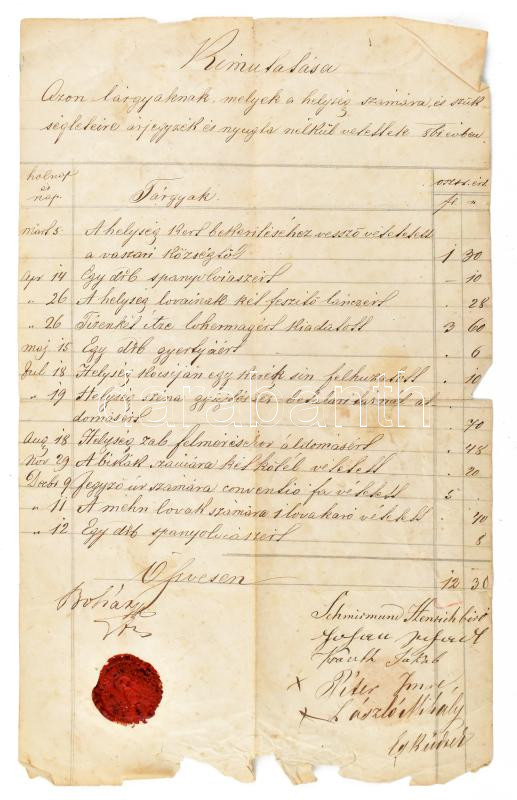 Kimutatása
Azon tárgyaknak, melyek a helység számára, és szük
ségleteire árjegyzék és nyugta nélkül vétettek
holnap
és
nap
Tárgyak.
ft
márt 5 A helység kert bekerítéséhez vessző vétetett
a vaszari községtől 1 30
Apr 14 Egy drb spanyolviaszért – 10
" 26 A helység lovainak két feszítő láncért . 28
" 26 Tizenkét itze lohermagért kiadatott 3 60
maj 15 Egy drb gyertyáért . 6
Jul 18 Helység kocsiján egy kerék sin felhuzatott . 10
" 19 Helység széna gyűjtéskor
domásért . 70
Aug 18 Helység zab felméréskor áldomásért . 48
Nov 29 A bikák számára két kötél vétetett . 20
Decbr 9 Jegyző úr számára conventio fa vétetett 5 .
" 11 A mehn lovak számára 1 lóvakaró vétetett . 40
" 12 Egy drb spanyolviaszért 8
Öszvesen 12 30
Schmismund Henrich bíró
Jakab
Péter Imre,
László Mihály
Esküdtek
darabanth